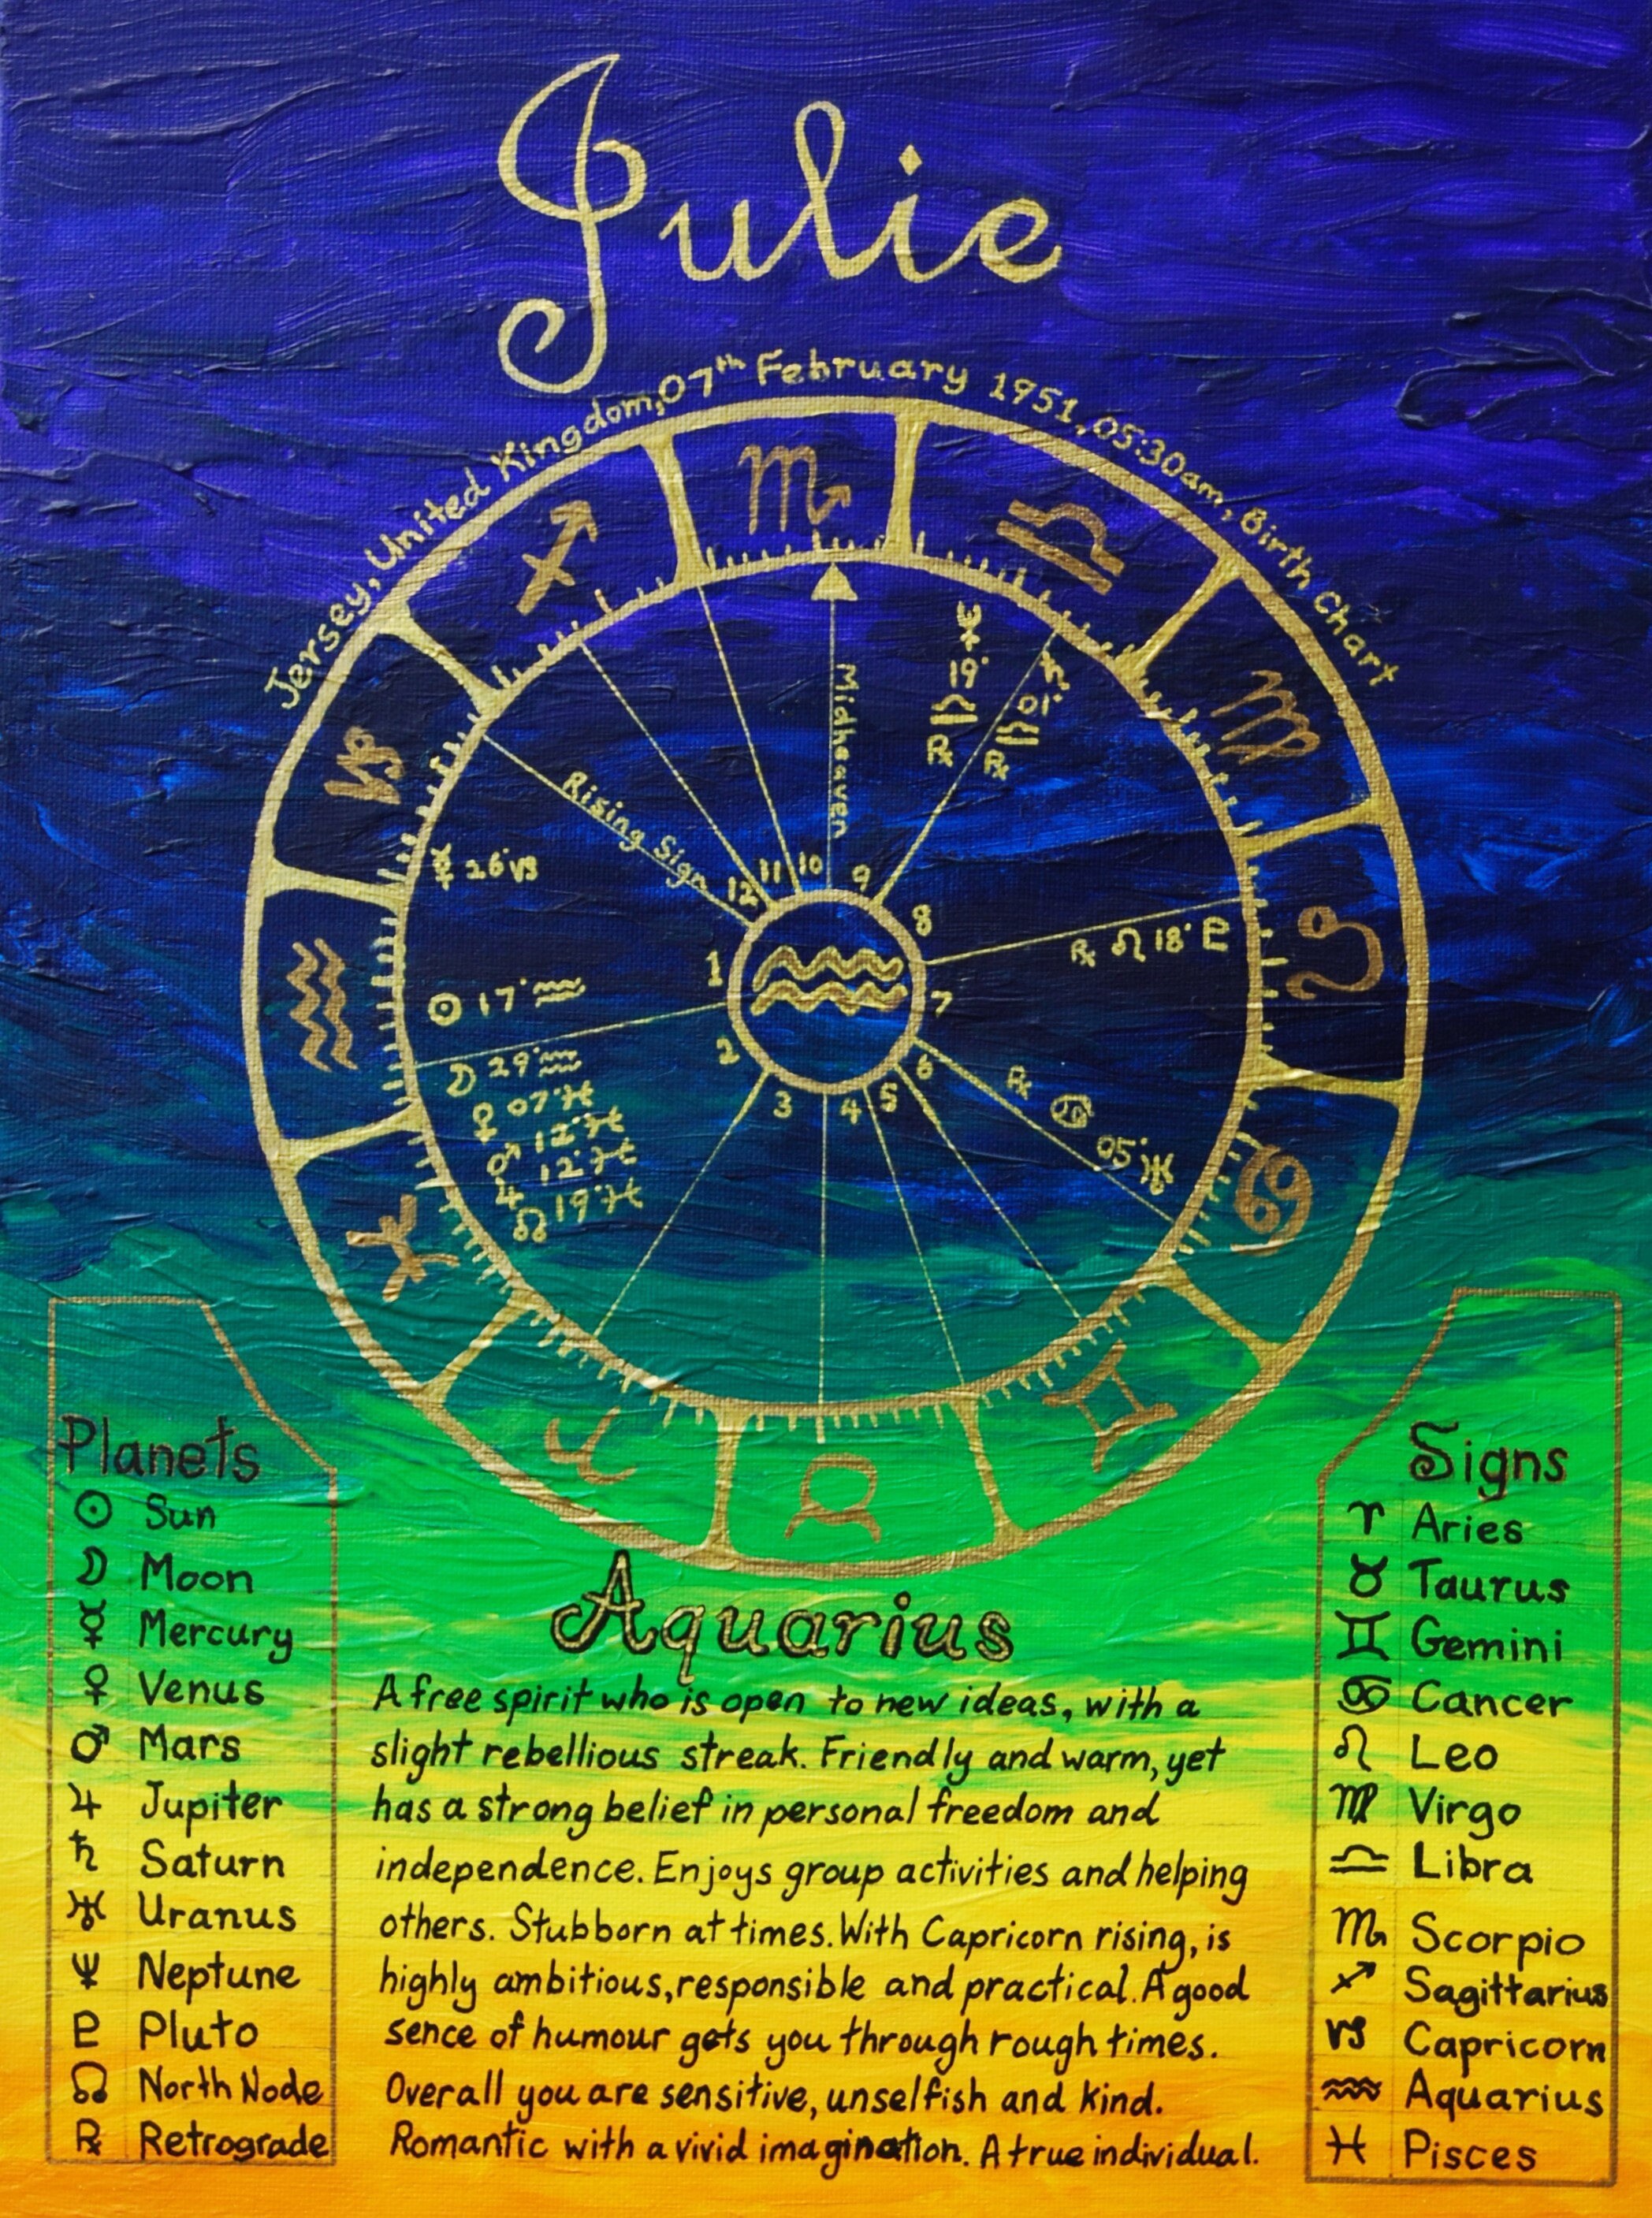 Julie
Jersey, United Kingdom, 07th February 1951, 05:30am, Birth Chart
Midheaven
♆ 19° ♎ ℞
♄ 01° ♎ ℞
Rising Sign
☿ 26° ♑
12 11 10 9
8
℞ ♌ 18° ♇
1
7
☉ 17° ♒
2
6
☽ 29° ♒
♀ 07° ♓
♂ 12° ♓
♃ 12° ♓
☊ 19° ♓
3 4 5
℞ ♋ 05° ♅
Planets
☉ Sun
☽ Moon
☿ Mercury
♀ Venus
♂ Mars
♃ Jupiter
♄ Saturn
♅ Uranus
♆ Neptune
♇ Pluto
☊ North Node
℞ Retrograde
Aquarius
A free spirit who is open to new ideas, with a
slight rebellious streak. Friendly and warm, yet
has a strong belief in personal freedom and
independence. Enjoys group activities and helping
others. Stubborn at times. With Capricorn rising, is
highly ambitious, responsible and practical. A good
sence of humour gets you through rough times.
Overall you are sensitive, unselfish and kind.
Romantic with a vivid imagination. A true individual.
Signs
♈ Aries
♉ Taurus
♊ Gemini
♋ Cancer
♌ Leo
♍ Virgo
♎ Libra
♏ Scorpio
♐ Sagittarius
♑ Capricorn
♒ Aquarius
♓ Pisces